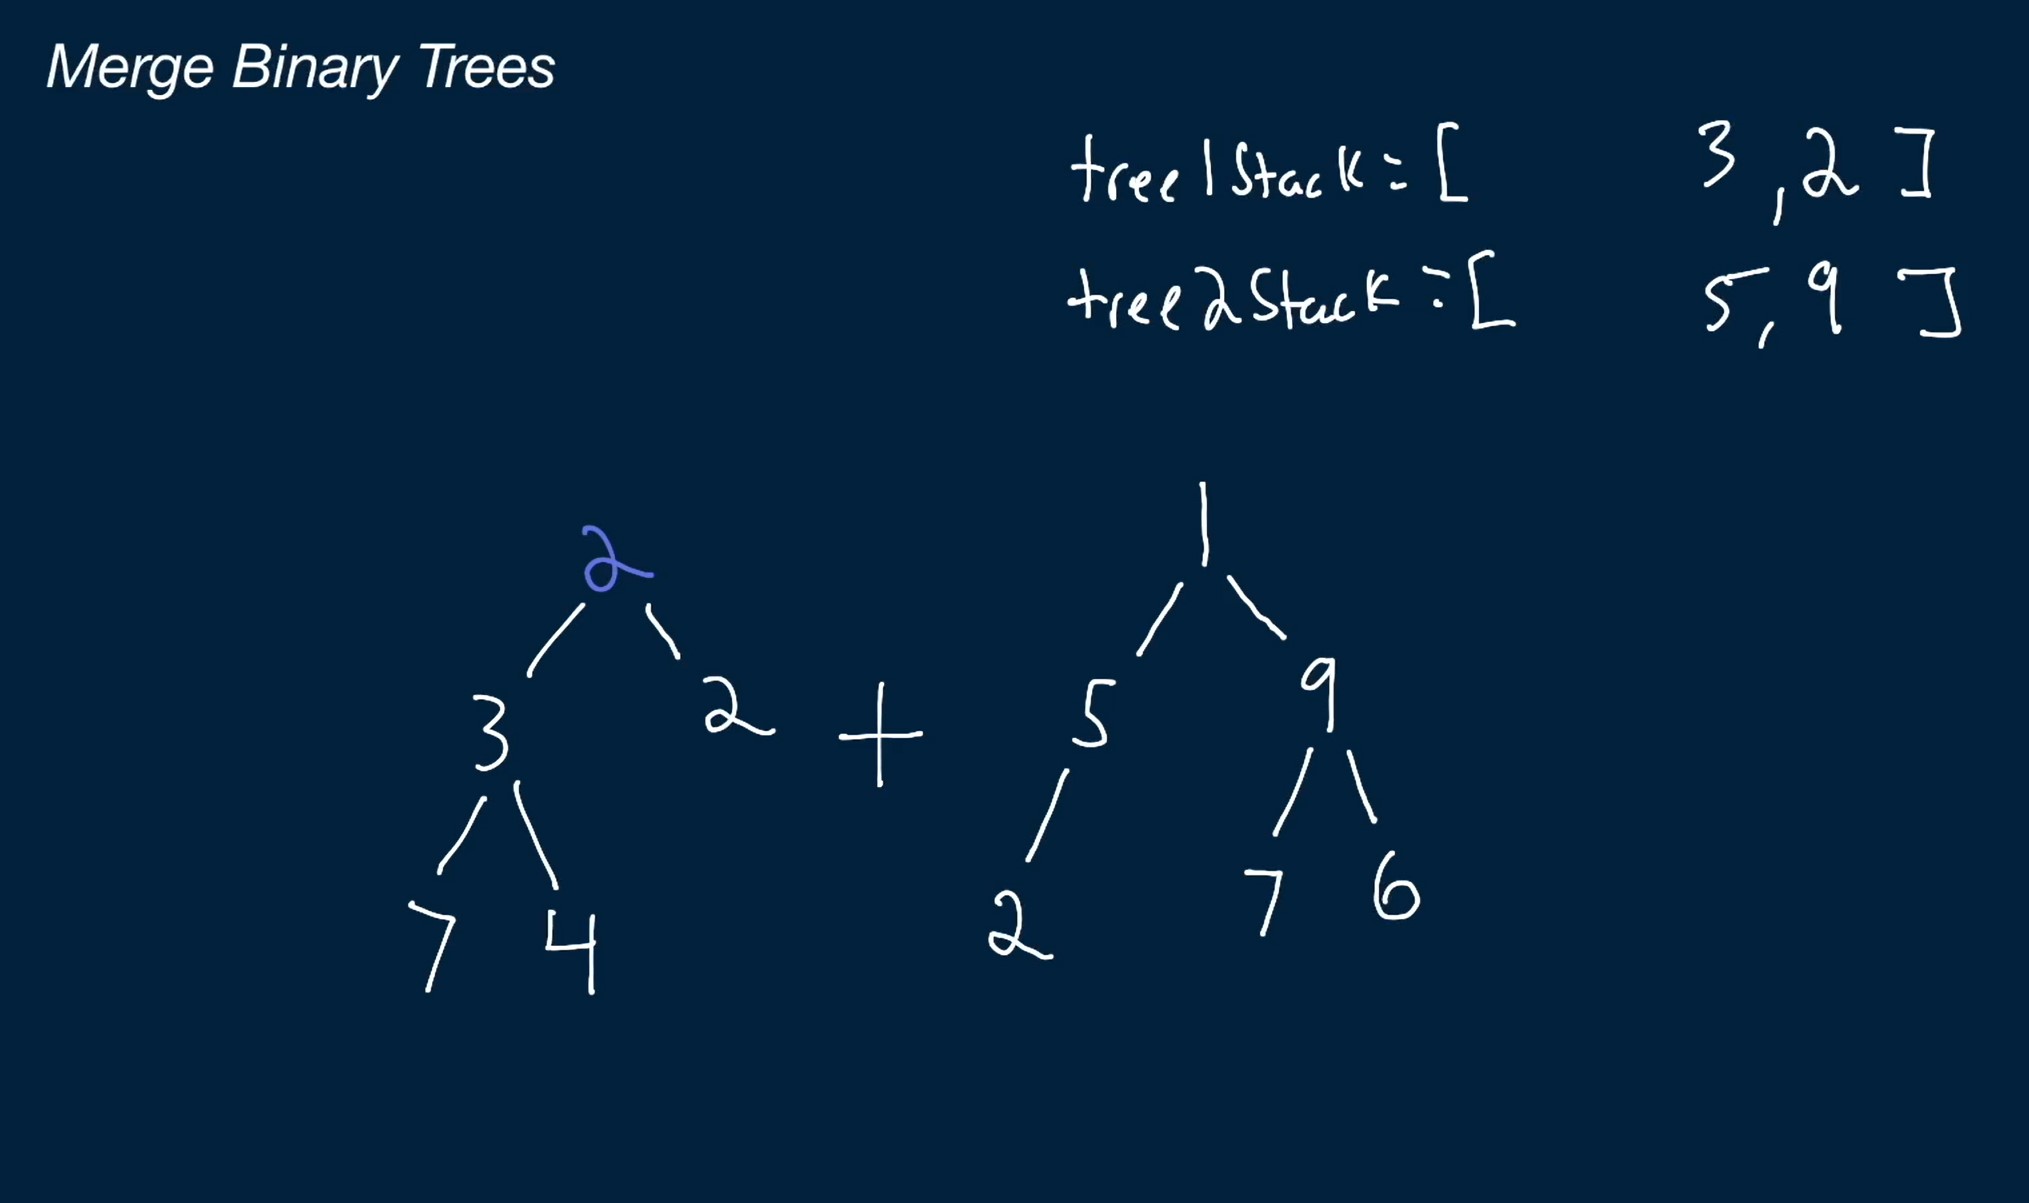 Merge Binary Trees
tree1Stack = [ 3, 2 ]
tree2Stack = [ 5, 9 ]
2
1
3 2 + 5 9
7 4 2 7 6